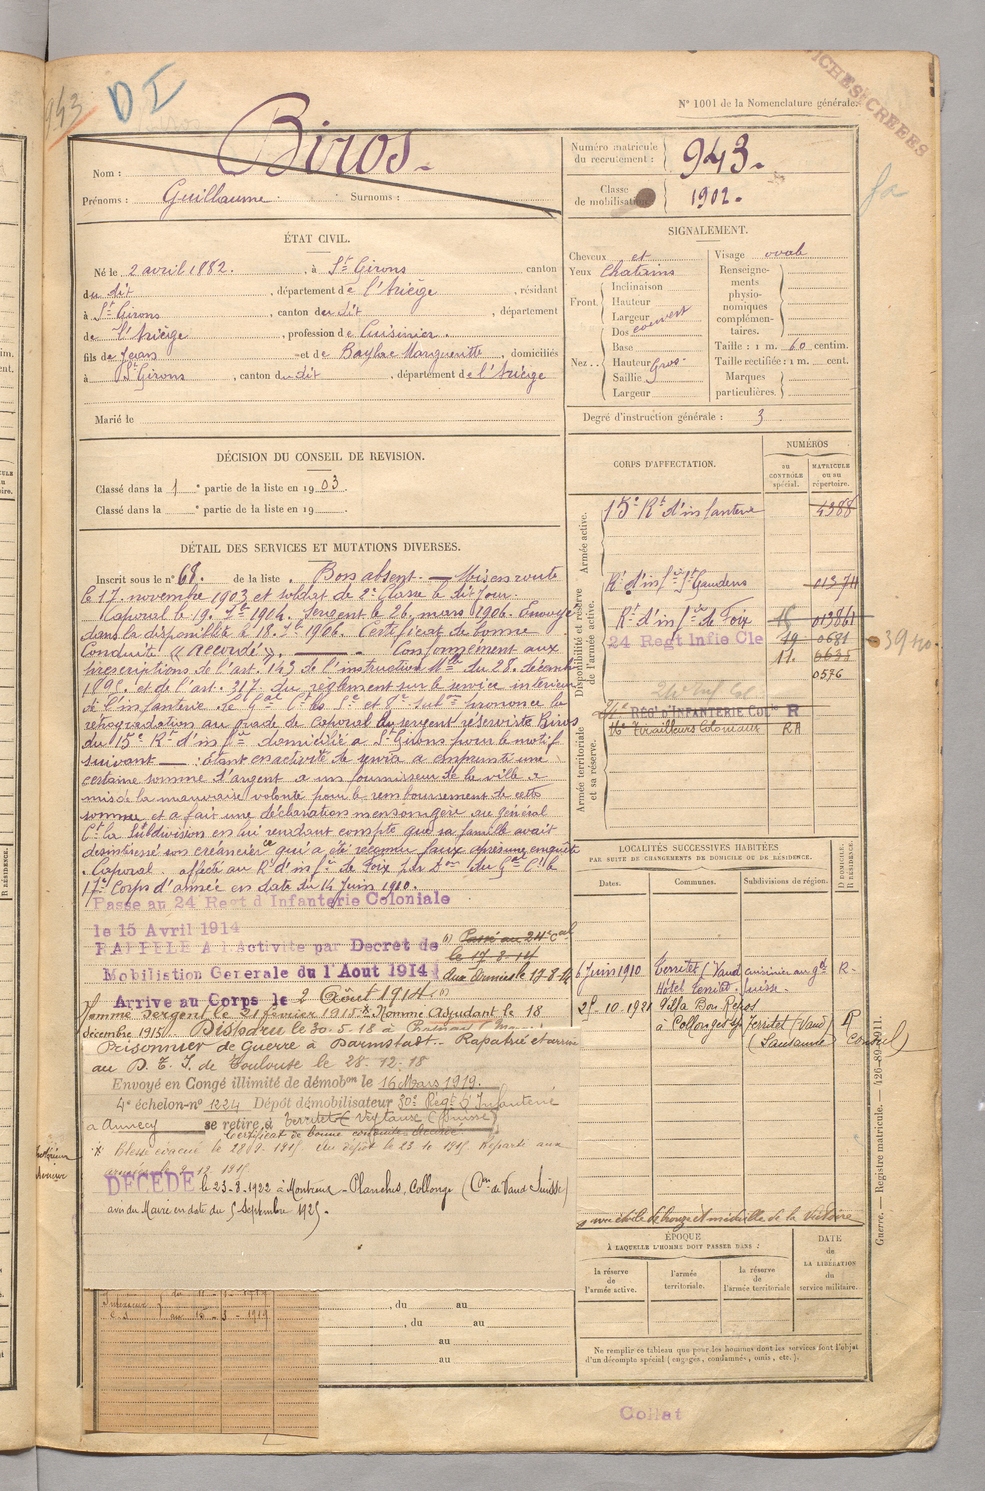 943
DI
FICHES CREEES
N° 1001 de la Nomenclature générale.
Nom : Biros
Prénoms : Guillaume. Surnoms :
Numéro matricule du recrutement : 943.
Classe de mobilisation 1902.
ÉTAT CIVIL.
Né le 2 avril 1882. , à St Girons canton
du dit , département de l'Ariège , résidant
à St Girons , canton du dit , département
de l'Ariège , profession de Cuisinier.
fils de Jean et de Baylac Marguerite , domiciliés
à St Girons , canton du dit , département de l'Ariège
Marié le
SIGNALEMENT.
Cheveux et
Yeux Chatains
Front.
Inclinaison
Hauteur
Largeur
Dos couvert
Nez ..
Base
Hauteur Gros
Saillie
Largeur
Visage ovale
Renseignements physionomiques complémentaires.
Taille : 1 m. 60 centim.
Taille rectifiée : 1 m. cent.
Marques particulières.
Degré d'instruction générale : 3
DÉCISION DU CONSEIL DE REVISION.
Classé dans la 1 e partie de la liste en 1903.
Classé dans la e partie de la liste en 19
CORPS D'AFFECTATION.
NUMÉROS
au CONTRÔLE spécial.
MATRICULE ou au répertoire.
Armée active.
15e Rt d'infanterie 4388
Disponibilité et réserve de l'armée active.
Rt d'infie St Gaudens 01374
Rt d'infie de Foix 013861
24 Regt Infie Cle 19 0681
11. 0635
0576
3940
Armée territoriale et sa réserve.
REGt D'INFANTERIE COLle R
16e Tirailleurs Coloniaux RA
DÉTAIL DES SERVICES ET MUTATIONS DIVERSES.
Inscrit sous le n° 68. de la liste. Bon absent. — Mis en route
le 17 novembre 1903 et soldat de 2e classe le dit jour.
Caporal le 19 7bre 1904. Sergent le 26 mars 1906. Envoyé
dans la disponibilité le 18 7bre 1906. Certificat de bonne
Conduite « Accordé ». — Conformément aux
prescriptions de l'art. 143 de l'instruction Mlle du 28 décembre
1895 et de l'art. 317 du règlement sur le service intérieur
de l'infanterie le Gal Ct les 5e et 8e Subons prononce la
rétrogradation au grade de caporal du sergent réserviste Biros
du 15e Rt d'infie domicilié à St Girons pour le motif
suivant — : étant en activité de service a emprunté une
certaine somme d'argent à un fournisseur de la ville a
mis de la mauvaise volonté pour le remboursement de cette
somme et a fait une déclaration mensongère au général
Ct la Subdivision en lui rendant compte que sa famille avait
desintéressé son créancier ce qui a été reconnu faux après une enquête
Caporal affecté au Rt d'infie de Foix par Don du Gal Ct le
17e Corps d'armée en date du 14 Juin 1910.
Passé au 24 Regt d Infanterie Coloniale
le 15 Avril 1914
RAPPELÉ A l'Activité par Decret de
Mobilistion Generale du 1 Aout 1914
Passé au 24e Cal
le 17-8-14
aux Armées le 17-8-14
Arrivé au Corps le 2 Août 1914
Nommé Sergent le 21 février 1915 * Nommé Adjudant le 18
décembre 1915. Disparu le 30-5-18 à
Prisonnier de Guerre à Darmstadt - Rapatrié et arrivé
au D. E. I. de Toulouse le 28-12-18
Envoyé en Congé illimité de démobon le 16 Mars 1919.
4e échelon-n° 1224 Dépôt démobilisateur 30e Regt d'Infanterie
à Annecy se retire à Territet Veytaux (Suisse)
Certificat de bonne conduite Accordé
DÉCÉDÉ le 23-8-1922 à Montreux-Planches, Collonge (Con de Vaud Suisse)
avis du Maire en date du 5 Septembre 1925.
LOCALITÉS SUCCESSIVES HABITÉES
PAR SUITE DE CHANGEMENTS DE DOMICILE OU DE RÉSIDENCE.
Dates.
Communes.
Subdivisions de région.
D DOMICILE. R RÉSIDENCE.
6 Juin 1910 Territet (Vaud cuisinier au gd R.
Hôtel Territet. Suisse.
28-10-1921 Villa Bon Repos
à Collonges s/ Territet (Vaud) D
(Lausanne) Consul)
médaille de la victoire
ÉPOQUE
À LAQUELLE L'HOMME DOIT PASSER DANS :
la réserve de l'armée active.
l'armée territoriale.
la réserve de l'armée territoriale
DATE de LA LIBÉRATION du service militaire.
Ne remplir ce tableau que pour les hommes dont les services font l'objet
d'un décompte spécial (engagés, condamnés, omis, etc.).
, du au
, du au
au
au
Guerre. — Registre matricule. — 426-89-1911.
Collat